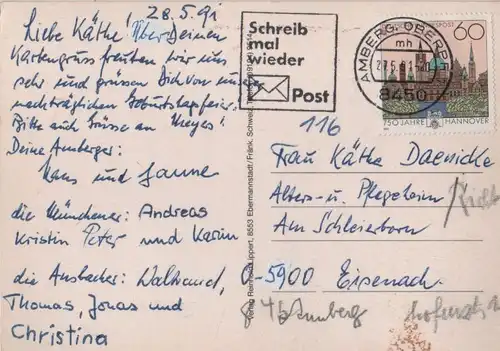 28.5.91
Liebe Käthe! Über Deinen
Kartengruss freuten wir uns
sehr und grüssen Dich von unserer
nachträglichen Geburtstagsfeier.
Bitte auch Grüsse an Meyers!
Deine Amberger:
Hans und Hanne
die Münchener: Andreas
Kristin Peter und Karin
die Ansbacher: Waltraud,
Thomas, Jonas und
Christina
Schreib
mal
wieder
Post
AMBERG, OBERPF
mh
27.5.91
8450
60
750 JAHRE HANNOVER
116
Frau Käthe Daenicke
Alters- u. Pflegeheim
Am Schleierborn
O-5900 Eisenach
Amberg